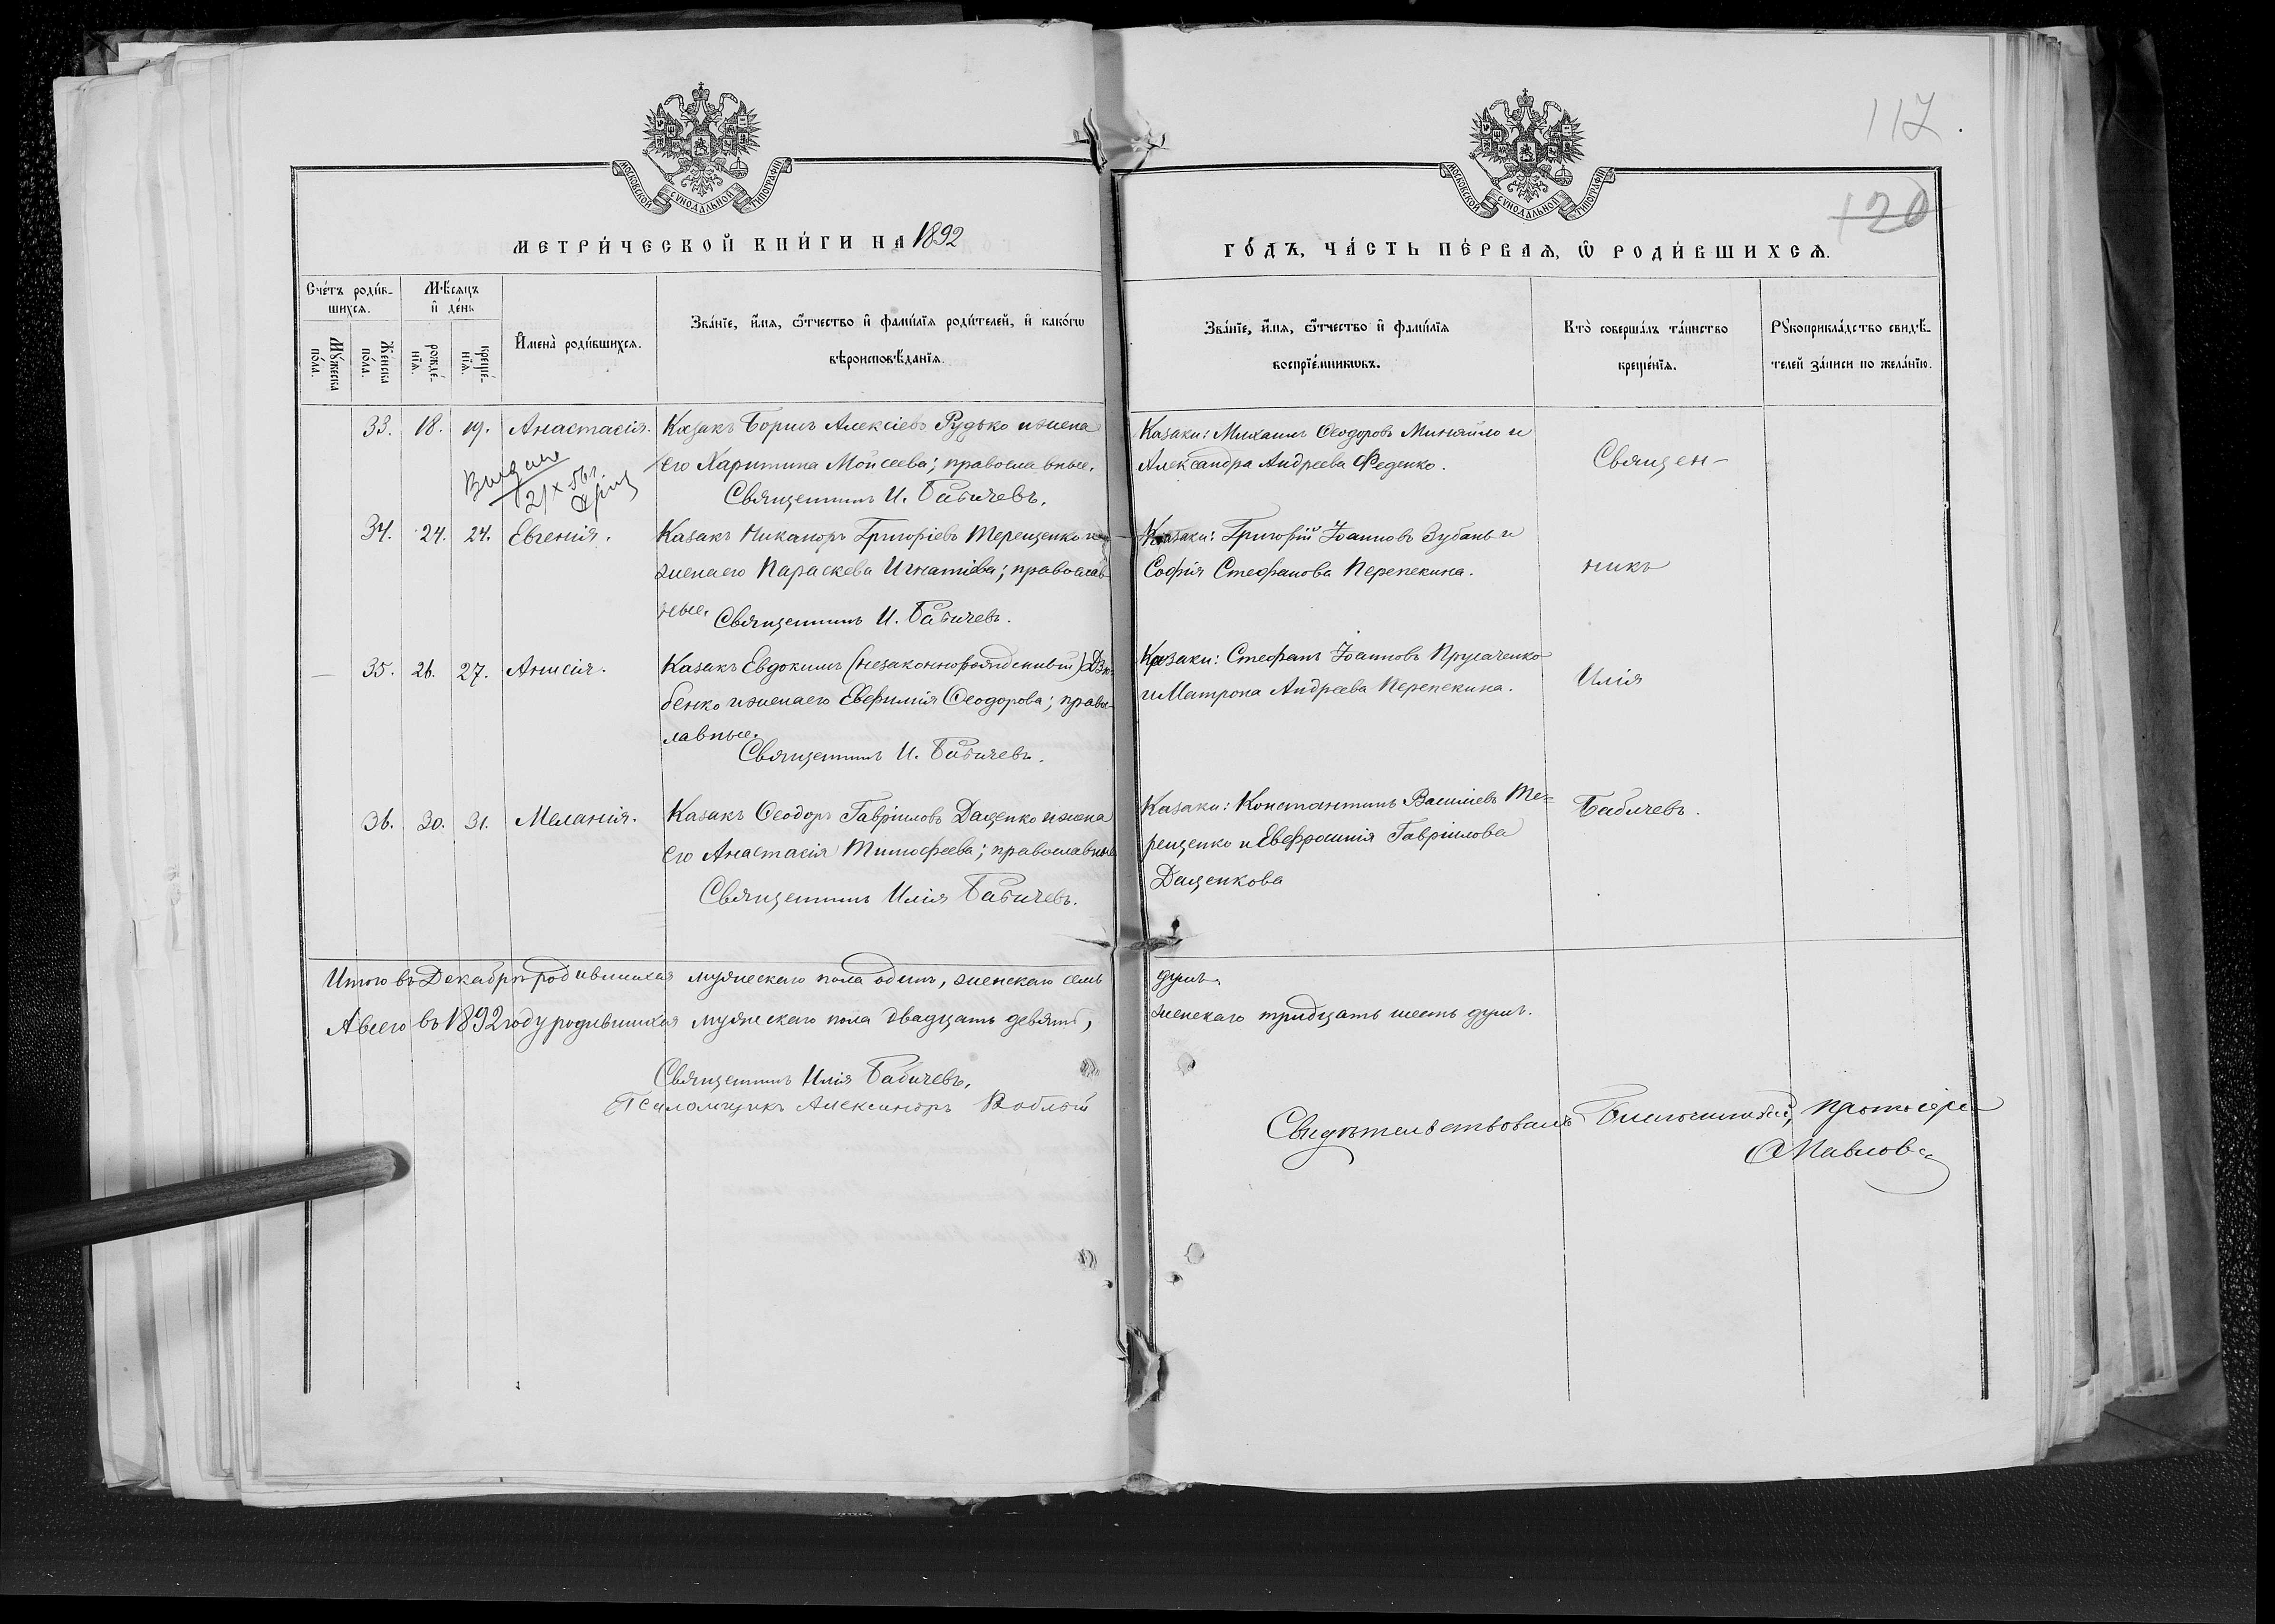 117.
120
МОСКОВСКОЙ СУНОДАЛЬНОЙ ТИПОГРАФІИ
МОСКОВСКОЙ СУНОДАЛЬНОЙ ТИПОГРАФІИ
МЕТРИ́ЧЕСКОЙ КНИ́ГИ НА 1892
ГО́ДЪ, ЧА́СТЬ ПЕ́РВАѦ, Ѡ҆ РОДИ́ВШИХСѦ.
Сче́тъ роди́в-
шихсѧ.
Мѣ́сѧцъ
и҆ де́нь
Мꙋ́жеска
по́ла.
Же́нска
по́ла.
рожде́-
нїѧ.
креще́-
нїѧ.
И҆мена̀ роди́вшихсѧ.
Зва́нїе, и҆́мѧ, ѻ҆́тчество и҆ фами́лїѧ роди́телей, и҆ како́гѡ
вѣроисповѣ́данїѧ.
Зва́нїе, и҆́мѧ, ѻ҆́тчество и҆ фами́лїѧ
воспрїе́мникѡвъ.
Кто̀ соверша́лъ та́инство
креще́нїѧ.
Рꙋкоприкла́дство свидѣ́-
телей за́писи по жела́нїю.
33. 18. 19. Анастасія. Казакъ Борисъ Алексіевъ Рудько и жена
его Харитина Моисеева; православные.
Священникъ И. Бабичевъ.
Казаки: Михаилъ Ѳеодоровъ Минайло и
Александра Андреева Феденко.
Священ-
21/X 56 г.
34. 24. 24. Евгенія. Казакъ Никаноръ Григоріевъ Терещенко и
жена его Параскева Игнатіева; православ-
ные. Священникъ И. Бабичевъ.
Казаки: Григорій Іоанновъ Зубань и
Софія Стефанова Перепекина.
никъ
— 35. 26. 27. Анисія. Казакъ Евдокимъ (незаконнорожденный) Дзю-
бенко и жена его Евфимія Ѳеодорова; право-
лавные.
Священникъ И. Бабичевъ.
Казаки: Стефанъ Іоанновъ Пругаченко
и Матрона Андреева Перепекина.
Илія
36. 30. 31. Меланія. Казакъ Ѳеодоръ Гавріиловъ Дащенко и жена
его Анастасія Тимофеева; православные
Священникъ Илія Бабичевъ.
Казаки: Константинъ Василіевъ Те-
рещенко и Евфросинія Гавріилова
Дащенкова
Бабичевъ.
Итого въ Декабрѣ родившихся мужескаго пола одинъ, женскаго семь душъ.
А всего въ 1892 году родившихся мужескаго пола двадцать девять, женскаго тридцать шесть душъ.
Священникъ Илія Бабичевъ.
Псаломщикъ Александръ
Свидѣтельствовалъ Благочинный, протоіерей
Павлов